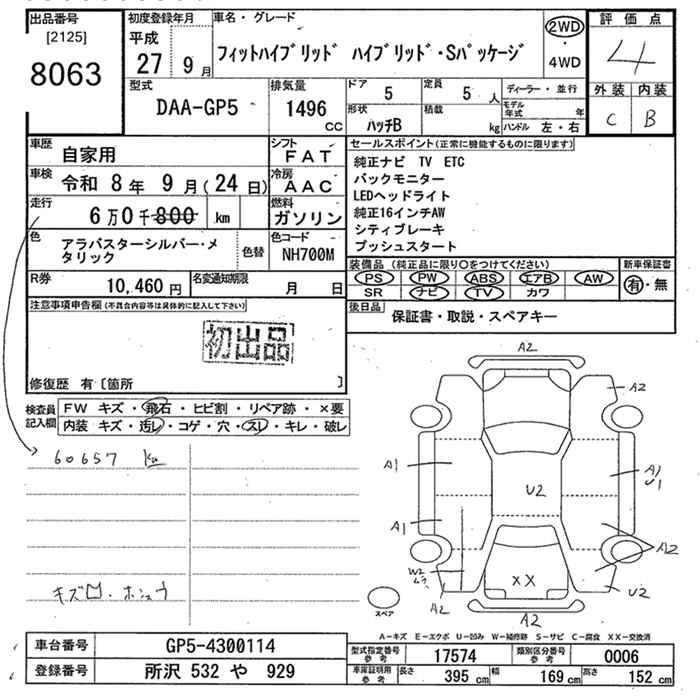 出品番号
[2125]
8063
初度登録年月
平成
27 9 月
車名・グレード
フィットハイブリッド ハイブリッド・Sパッケージ
2WD
・
4WD
評価点
4
外装 内装
C B
型式
DAA-GP5
排気量
1496
CC
ドア
5
定員
5 人
形状
ハッチB
積載
kg
ディーラー・並行
モデル年式 年
ハンドル 左・右
車歴
自家用
シフト
FAT
車検
令和 8 年 9 月(24 日)
冷房
AAC
走行
6 万 0 千 800 km
燃料
ガソリン
色
アラバスターシルバー・メ
タリック
色替
色コード
NH700M
R券
10,460 円
名変通知期限
月 日
セールスポイント(正常に機能するものに限ります)
純正ナビ TV ETC
バックモニター
LEDヘッドライト
純正16インチAW
シティブレーキ
プッシュスタート
装備品 (純正品に限り○をつけてください)
新車保証書
PS PW ABS エアB AW
SR ナビ TV カワ
有・無
後日品
保証書・取説・スペアキー
注意事項申告欄(不具合内容等は具体的に記入して下さい)
初出品
修復歴 有〔箇所 〕
検査員
記入欄
FW キズ・飛石・ヒビ割・リペア跡・×要
内装 キズ・汚レ・コゲ・穴・スレ・キレ・破レ
60657 km
キズ凹・ホシュウ
A2
A2
A1
A1
U1
U2
A1
A2
W2
ムラ
A2
XX
U2
A2
スペア
A-キズ E-エクボ U-凹み W-補修跡 S-サビ C-腐食 XX-交換済
車台番号
GP5-4300114
登録番号
所沢 532 や 929
型式指定番号
参考
17574
類別区分番号
参考
0006
車庫証明用
参考
長さ 395 cm
幅 169 cm
高さ 152 cm